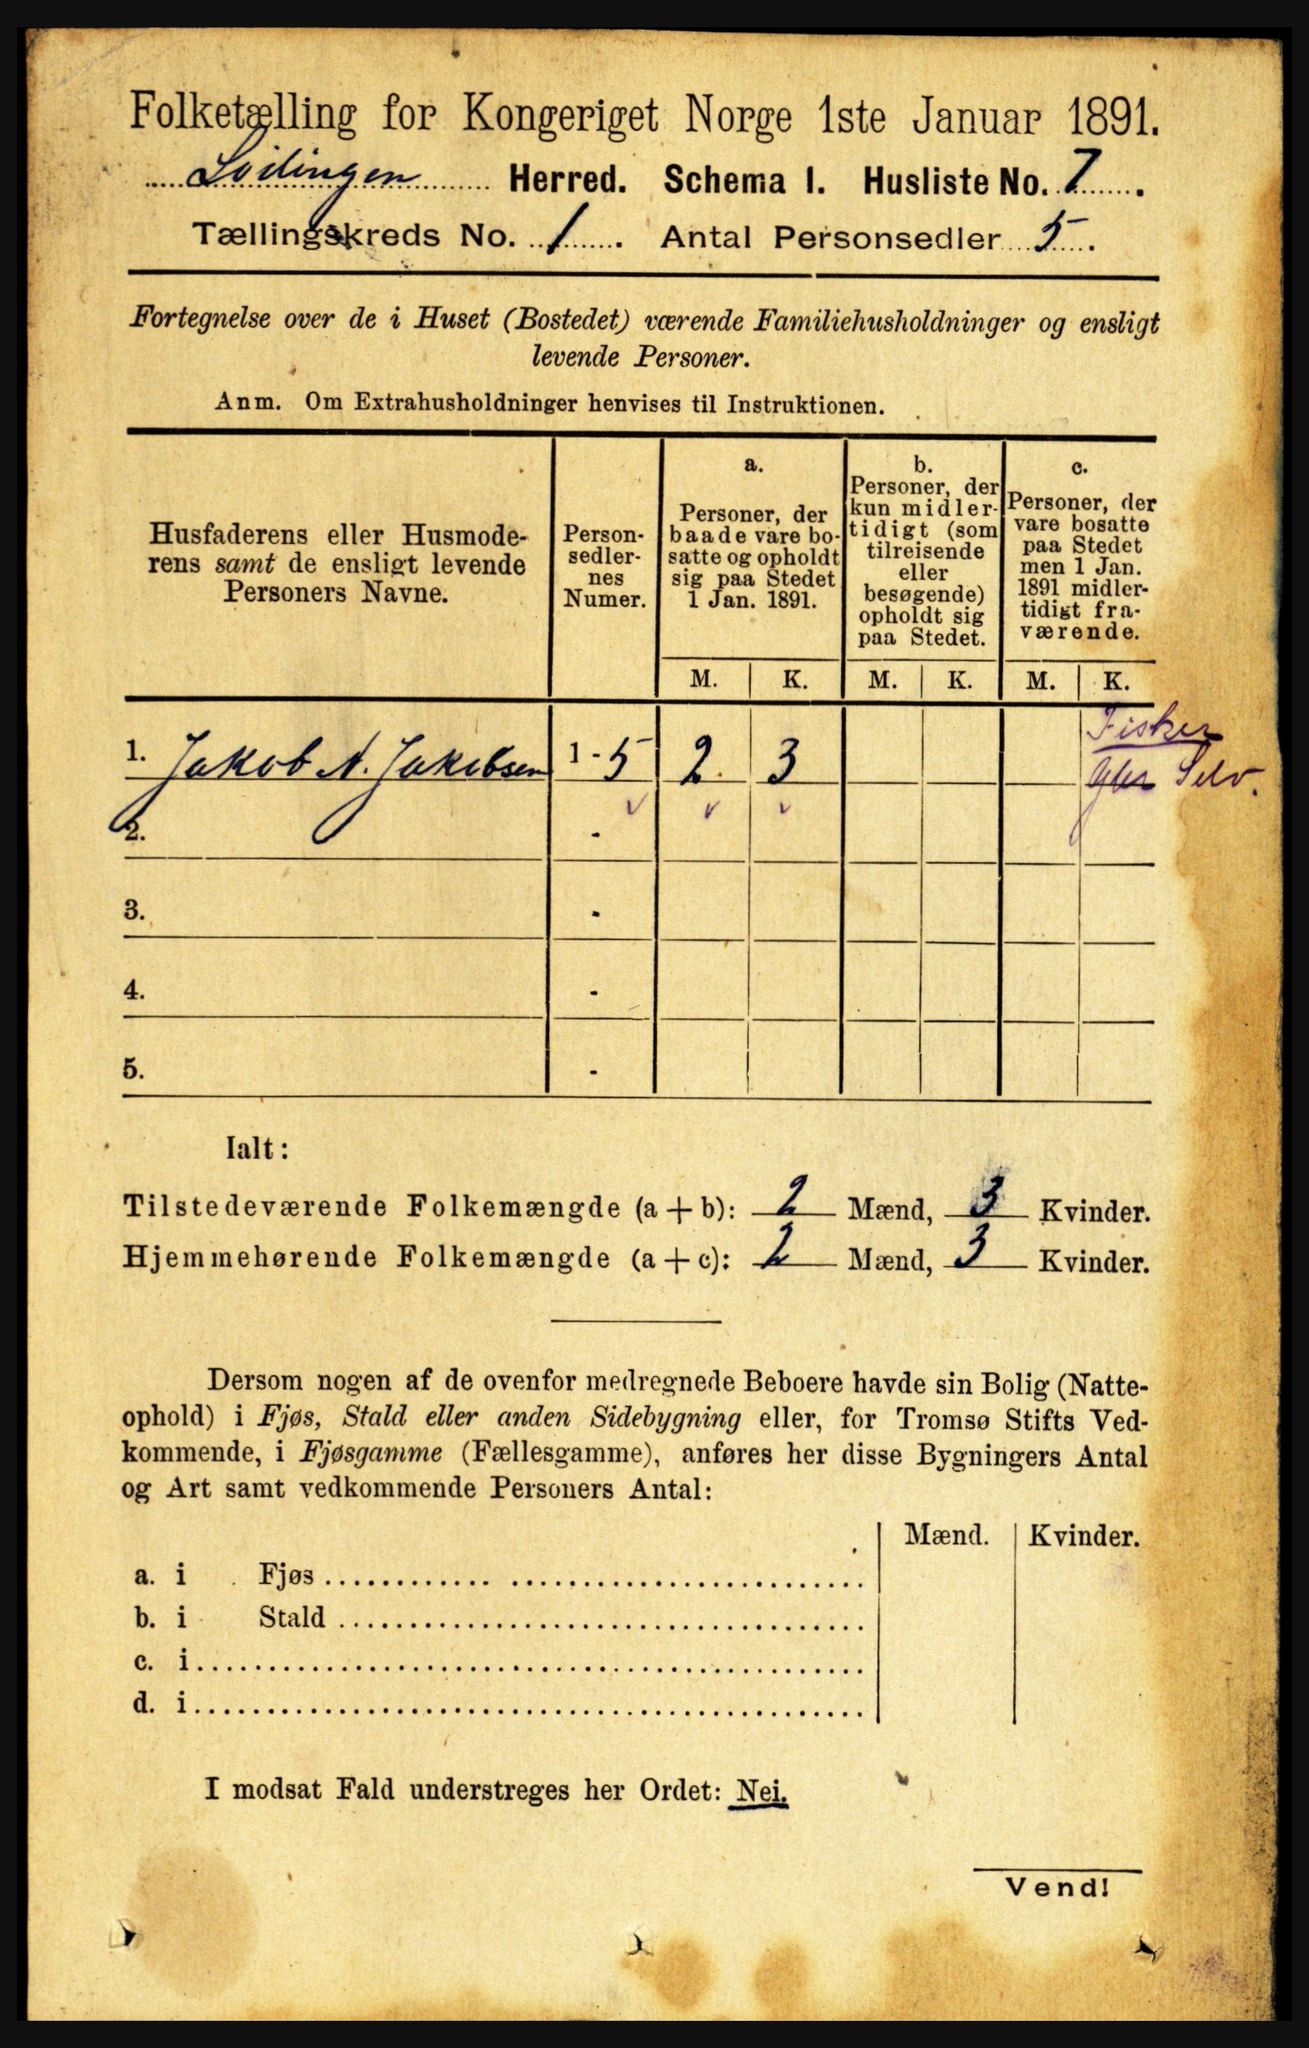 Folketælling for Kongeriget Norge 1ste Januar 1891.
Lødingen Herred. Schema I. Husliste No. 7.
Tællingskreds No. 1. Antal Personsedler 5.
Fortegnelse over de i Huset (Bostedet) værende Familiehusholdninger og ensligt
levende Personer.
Anm. Om Extrahusholdninger henvises til Instruktionen.
Husfaderens eller Husmode-
rens samt de ensligt levende
Personers Navne.
Person-
sedler-
nes
Numer.
a.
Personer, der
baade vare bo-
satte og opholdt
sig paa Stedet
1 Jan. 1891.
b.
Personer, der
kun midler-
tidigt (som
tilreisende
eller
besøgende)
opholdt sig
paa Stedet.
c.
Personer, der
vare bosatte
paa Stedet
men 1 Jan.
1891 midler-
tidigt fra-
værende.
M. K. M. K. M. K.
Fisker
1. Jakob A. Jakobsen 1 - 5 2 3 gbr Selv.
2. -
3. -
4. -
5. -
Ialt:
Tilstedeværende Folkemængde (a + b): 2 Mænd, 3 Kvinder.
Hjemmehørende Folkemængde (a + c): 2 Mænd, 3 Kvinder.
Dersom nogen af de ovenfor medregnede Beboere havde sin Bolig (Natte-
ophold) i Fjøs, Stald eller anden Sidebygning eller, for Tromsø Stifts Ved-
kommende, i Fjøsgamme (Fællesgamme), anføres her disse Bygningers Antal
og Art samt vedkommende Personers Antal:
Mænd. Kvinder.
a. i Fjøs
b. i Stald
c. i
d. i
I modsat Fald understreges her Ordet: Nei.
Vend!